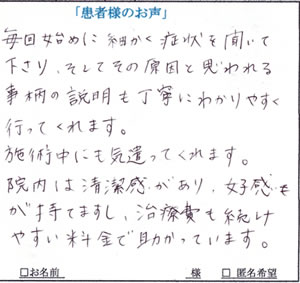 「患者様のお声」
毎回始めに細かく症状を聞いて
下さり、そしてその原因と思われる
事柄の説明も丁寧にわかりやすく
行ってくれます。
施術中にも気遣ってくれます。
院内は清潔感があり、好感も
が持てますし、治療費も続け
やすい料金で助かっています。
□お名前 様 □ 匿名希望